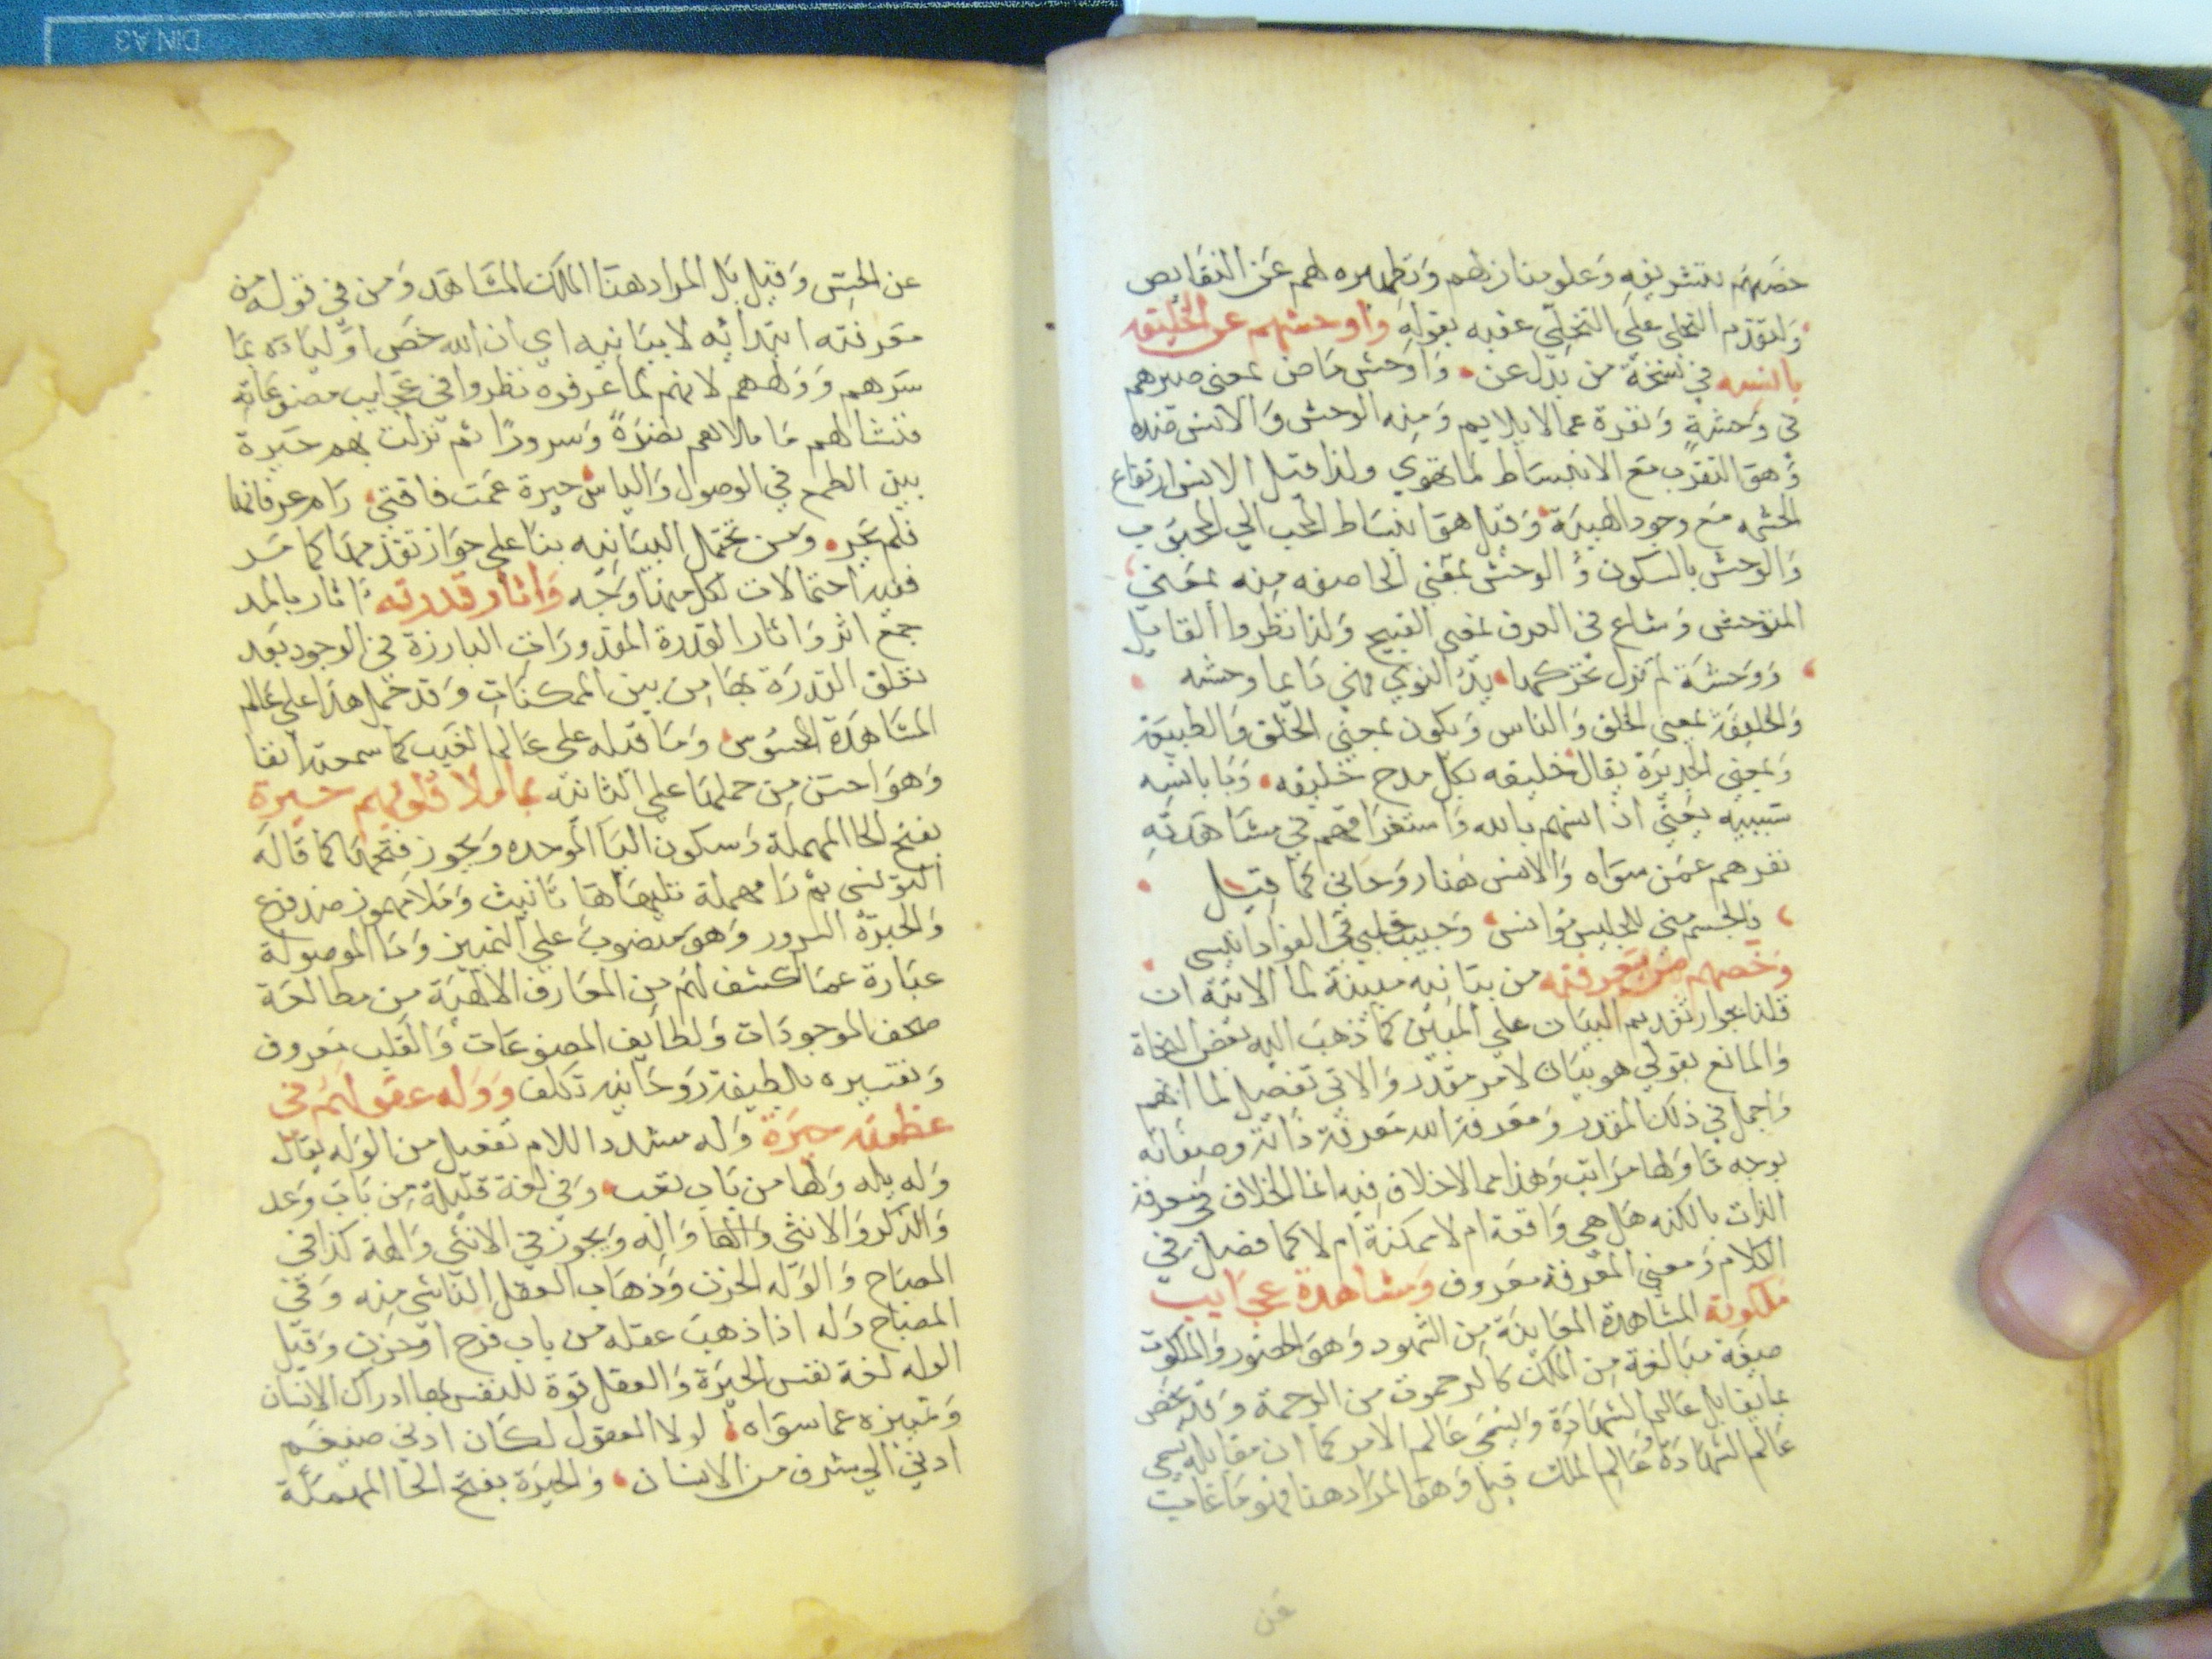 خصهم بتشريفه وعلو منازلهم وتطهيره لهم عن النقايص
ولتقدم التخلي على التحلي عقبه بقوله واوحشهم عن الخليقه
بانسه في نسخة من بدل عن وأوحش ماض بمعنى صيرهم
في وحشة ونفرة عمالا يلايم ومنه الوحش والانس ضده
وهو التقرب مع الانبساط لما تهوي ولذا قيل الانس ارتفاع
الحشمه مع وجود الهيبة وقيل هو انبساط المحب الي المحبوب
والوحش بالسكون والوحش بمعني الحا صفه منه بمعني
المتوحش وشاع في العرف بمعنى القبيح ولذا نظروا القايل
ووحشة لم تزل تحركها يد النوي فهي دايما وحشه
والخليقة بمعنى الخلق والناس ويكون بمعني الخلق والطبيعة
وبمعنى الجديرة يقال خليقه بكل مدح خليقه وبا بانسه
سببيه يعني اذ انسهم بالله واستغراقهم في مشاهدته
نفرهم عمن سواه والانس هنا روحاني كما قيل
فالجسم مني للجليس مؤانس وحبيب قلبي في الفواد انيسي
وخصهم من معرفته من بيانيه مبينة لما الاتية ان
قلنا بجواز تقديم البيان علي المبين كما ذهب اليه بعض النحاة
والمانع يقولي هو بيان لامر مقدر والاتي تفصيل لما ابهم
واجمل في ذلك المقدر ومعرفة الله معرفة ذاته وصفاته
بوجه ما ولها مراتب وهذا مما لاخلاف فيه انما الخلاف في معرفة
الذات بالكنه هل هي واقعة ام لا ممكنة ام لا كما فصل في
الكلام ومعني المعرفة معروف ومشاهدة عجايب
ملكوته المشاهدة المعاينة من الشهود وهو الحضور والملكوت
صيغة مبالغة من الملك كالرحموت من الرحمة وقد يخص
بما يقابل عالم الشهادة ويسمي عالم الامر كما ان مقابله يسمي
عالم الشهادة وعالم الملك قيل وهو المراد هنا فهو ما غاب
عن
عن الحس وقيل بل المراد هنا الملك المشاهد ومن في قوله من
معرفته ابتدائيه لا بيانيه اي ان الله خص اولياءه بما
سرهم وولههم لانهم لما عرفوه نظروا في عجايب مصنوعاته
فنشا لهم ما ملاهم نضرة وسرورا ثم نزلت بهم حيرة
بين الطمع في الوصول والياس حيرة عمت فاقتي رام عرفانها
فلم يحر ومن يحتمل البيانيه بنا علي جواز تقدمها كما مر
ففيه احتمالات لكل منها وجه واثار قدرته اثار بالمد
جمع اثر واثار القدرة المقدورات البارزة في الوجود بعد
تعلق القدرة بها من بين الممكنات وقد حمل هذا علي عالم
المشاهدة المحسوس وما قبله علي عالم الغيب كما سمعته انفا
وهو احسن من حملها علي الثانيه بما ملا قلوبهم حبرة
بفتح الحا المهملة وسكون البا الموحده ويجوز فتحها كما قاله
التونسي ثم را مهملة تليها ها تانيث وملا مهموز ضد فرغ
والحبرة السرور وهو منصوب علي التمييز وما الموصولة
عبارة عما انكشف لهم من المعارف الالهية من مطالعة
صحف الموجودات ولطايف المصنوعات والقلب معروف
وتفسيره بلطيفة روحانيه تكلف ووله عقولهم في
عظمته حيرة وله مشدد اللام تفعيل من الوله يقال
وله يله ولها من باب تعب وفي لغة قليلة من باب وعد
والذكر والانثي والها واله ويجوز في الانثي والهة كذا في
المصباح والوله الحزن وذهاب العقل الناشي منه وفي
المصباح وله اذا ذهب عقله من باب فرح او حزن وقيل
الوله لغة نفس الحيرة والعقل قوة للنفس بها ادراك الانسان
وتمييزه عما سواه لولا العقول لكان ادني ضيغم
ادني الي شرف من الانسان والحيرة بفتح الحا المهملة